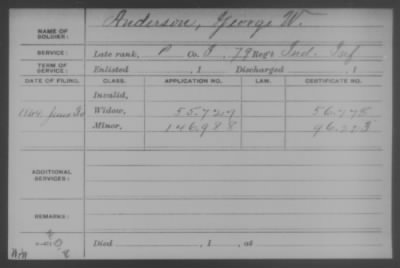 NAME OF SOLDIER: Anderson, George W.
SERVICE: Late rank, P Co. I, 79 Reg't Ind. Inf
TERM OF SERVICE: Enlisted , 1 Discharged , 1
DATE OF FILING. CLASS. APPLICATION NO. LAW. CERTIFICATE NO.
Invalid,
1864, June 30 Widow, 55.729 56.778
Minor, 146.988 96.223
ADDITIONAL SERVICES:
REMARKS:
Died , 1 , at